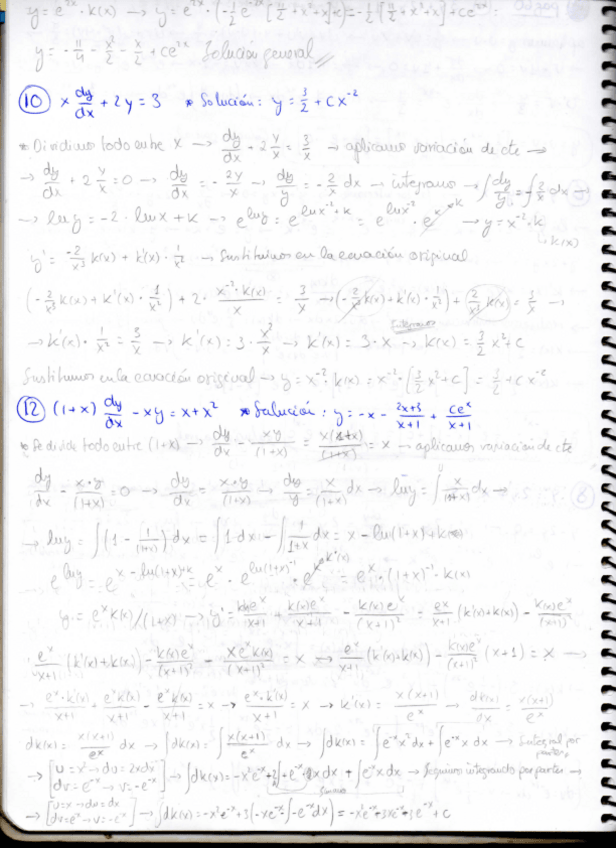 y = e^2x · k(x) → y = e^2x · (-1/2 e^-2x [11/2 + x² + x] k) = -1/2 [11/2 + x² + x] + ce^2x:
y = -11/4 - x²/2 - x/2 + ce^2x Solución general //
⑩ x dy/dx + 2y = 3 * Solución: y = 3/2 + C x^-2
* Dividimos todo entre x → dy/dx - 2 y/x = 3/x → aplicamos variación de cte →
→ dy/dx + 2 y/x = 0 → dy/dx = - 2y/x → dy/y = - 2/x dx → integramos → ∫ dy/y = -∫ 2/x dx →
→ ln y = -2 · ln x + k → e^ln y = e^(ln x^-2 + k) = e^(ln x^-2) · e^k → y = x^-2 · k
↳ k(x)
y' = -2/x³ k(x) + k'(x) · 1/x² → Sustituimos en la ecuación original
(-2/x³ k(x) + k'(x) · 1/x²) + 2 · x^-2 · k(x)/x = 3/x → (-2/x³ k(x) + k'(x) · 1/x²) + 2/x³ k(x) = 3/x →
→ k'(x) · 1/x² = 3/x → k'(x) = 3 · x²/x → k'(x) = 3 · x → Integramos k(x) = 3/2 x² + c
Sustituimos en la ecuación original → y = x^-2 · k(x) = x^-2 · [3/2 x² + c] = 3/2 + c x^-2
⑫ (1+x) dy/dx - xy = x + x² * Solución: y = -x - 2x+3/x+1 + ce^x/x+1
* Se divide todo entre (1+x) → dy/dx - xy/(1+x) = x(1+x)/(1+x) = x → aplicamos variación de cte
dy/dx - x·y/(1+x) = 0 → dy/dx = x·y/(1+x) → dy/y = x/(1+x) dx → ln y = ∫ x/(1+x) dx →
→ ln y = ∫(1 - 1/(1+x)) dx = ∫1 dx - ∫ 1/1+x dx = x - ln(1+x) + k
e^ln y = e^(x - ln(1+x) + k) = e^x · e^(ln(1+x)^-1) · e^k = e^x · (1+x)^-1 · k(x)
y = e^x k(x)/(1+x) → y' = k'(x)e^x/x+1 + k(x)e^x/x+1 - k(x)e^x/(x+1)² = e^x/x+1 (k'(x)+k(x)) - k(x)e^x/(x+1)²
e^x/x+1 (k'(x)+k(x)) - k(x)e^x/(x+1)² - xe^x k(x)/(x+1)² = x → e^x/x+1 (k'(x)+k(x)) - k(x)e^x/(x+1)² (x+1) = x →
→ e^x·k'(x)/x+1 + e^x k(x)/x+1 - e^x k(x)/x+1 = x → e^x·k'(x)/x+1 = x → k'(x) = x(x+1)/e^x → dk(x)/dx = x(x+1)/e^x
dk(x) = x(x+1)/e^x dx → ∫dk(x) = ∫ x(x+1)/e^x dx → ∫dk(x) = ∫e^-x x² dx + ∫e^-x x dx → Integral por partes
→ [u = x² → du = 2x dx; dv = e^-x → v = -e^-x] → ∫dk(x) = -x²e^-x + 2∫e^-x x dx + ∫e^-x x dx → Seguimos integrando por partes →
→ [u = x → du = dx; dv = e^-x → v = -e^-x] → ∫dk(x) = -x²e^-x + 3(-xe^-x - ∫-e^-x dx) = -x²e^-x + 3xe^-x + 3e^-x + c